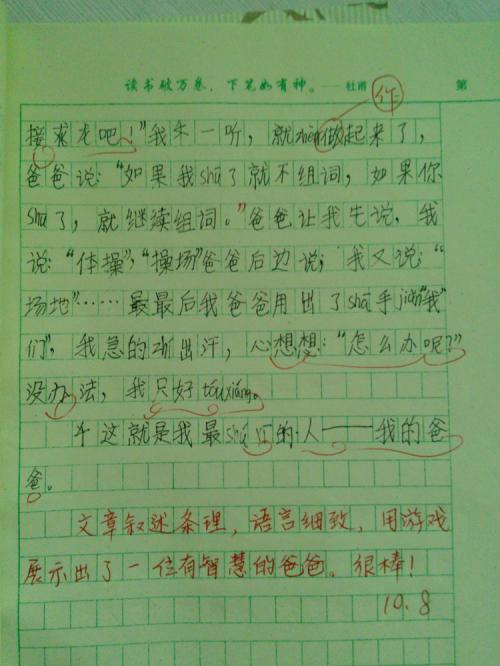 读书破万卷，下笔如有神。——杜甫
第
作
接求龙吧！"我一听，就zhèn做起来了，
爸爸说："如果我shū了就不组词，如果你
shū了，就继续组词。"爸爸让我先说，我
说："体操"，"操场"爸爸后边说；我又说："
场地"……最最后我爸爸用出了shā手jiǎn"我"
们"，我急的出汗，心想想："怎么办呢？"
没办法，我只好tóuxiáng。
这就是我最的人——我的爸
爸。
文章叙述条理，语言细致，用游戏
展示出了一位有智慧的爸爸。很棒！
10.8